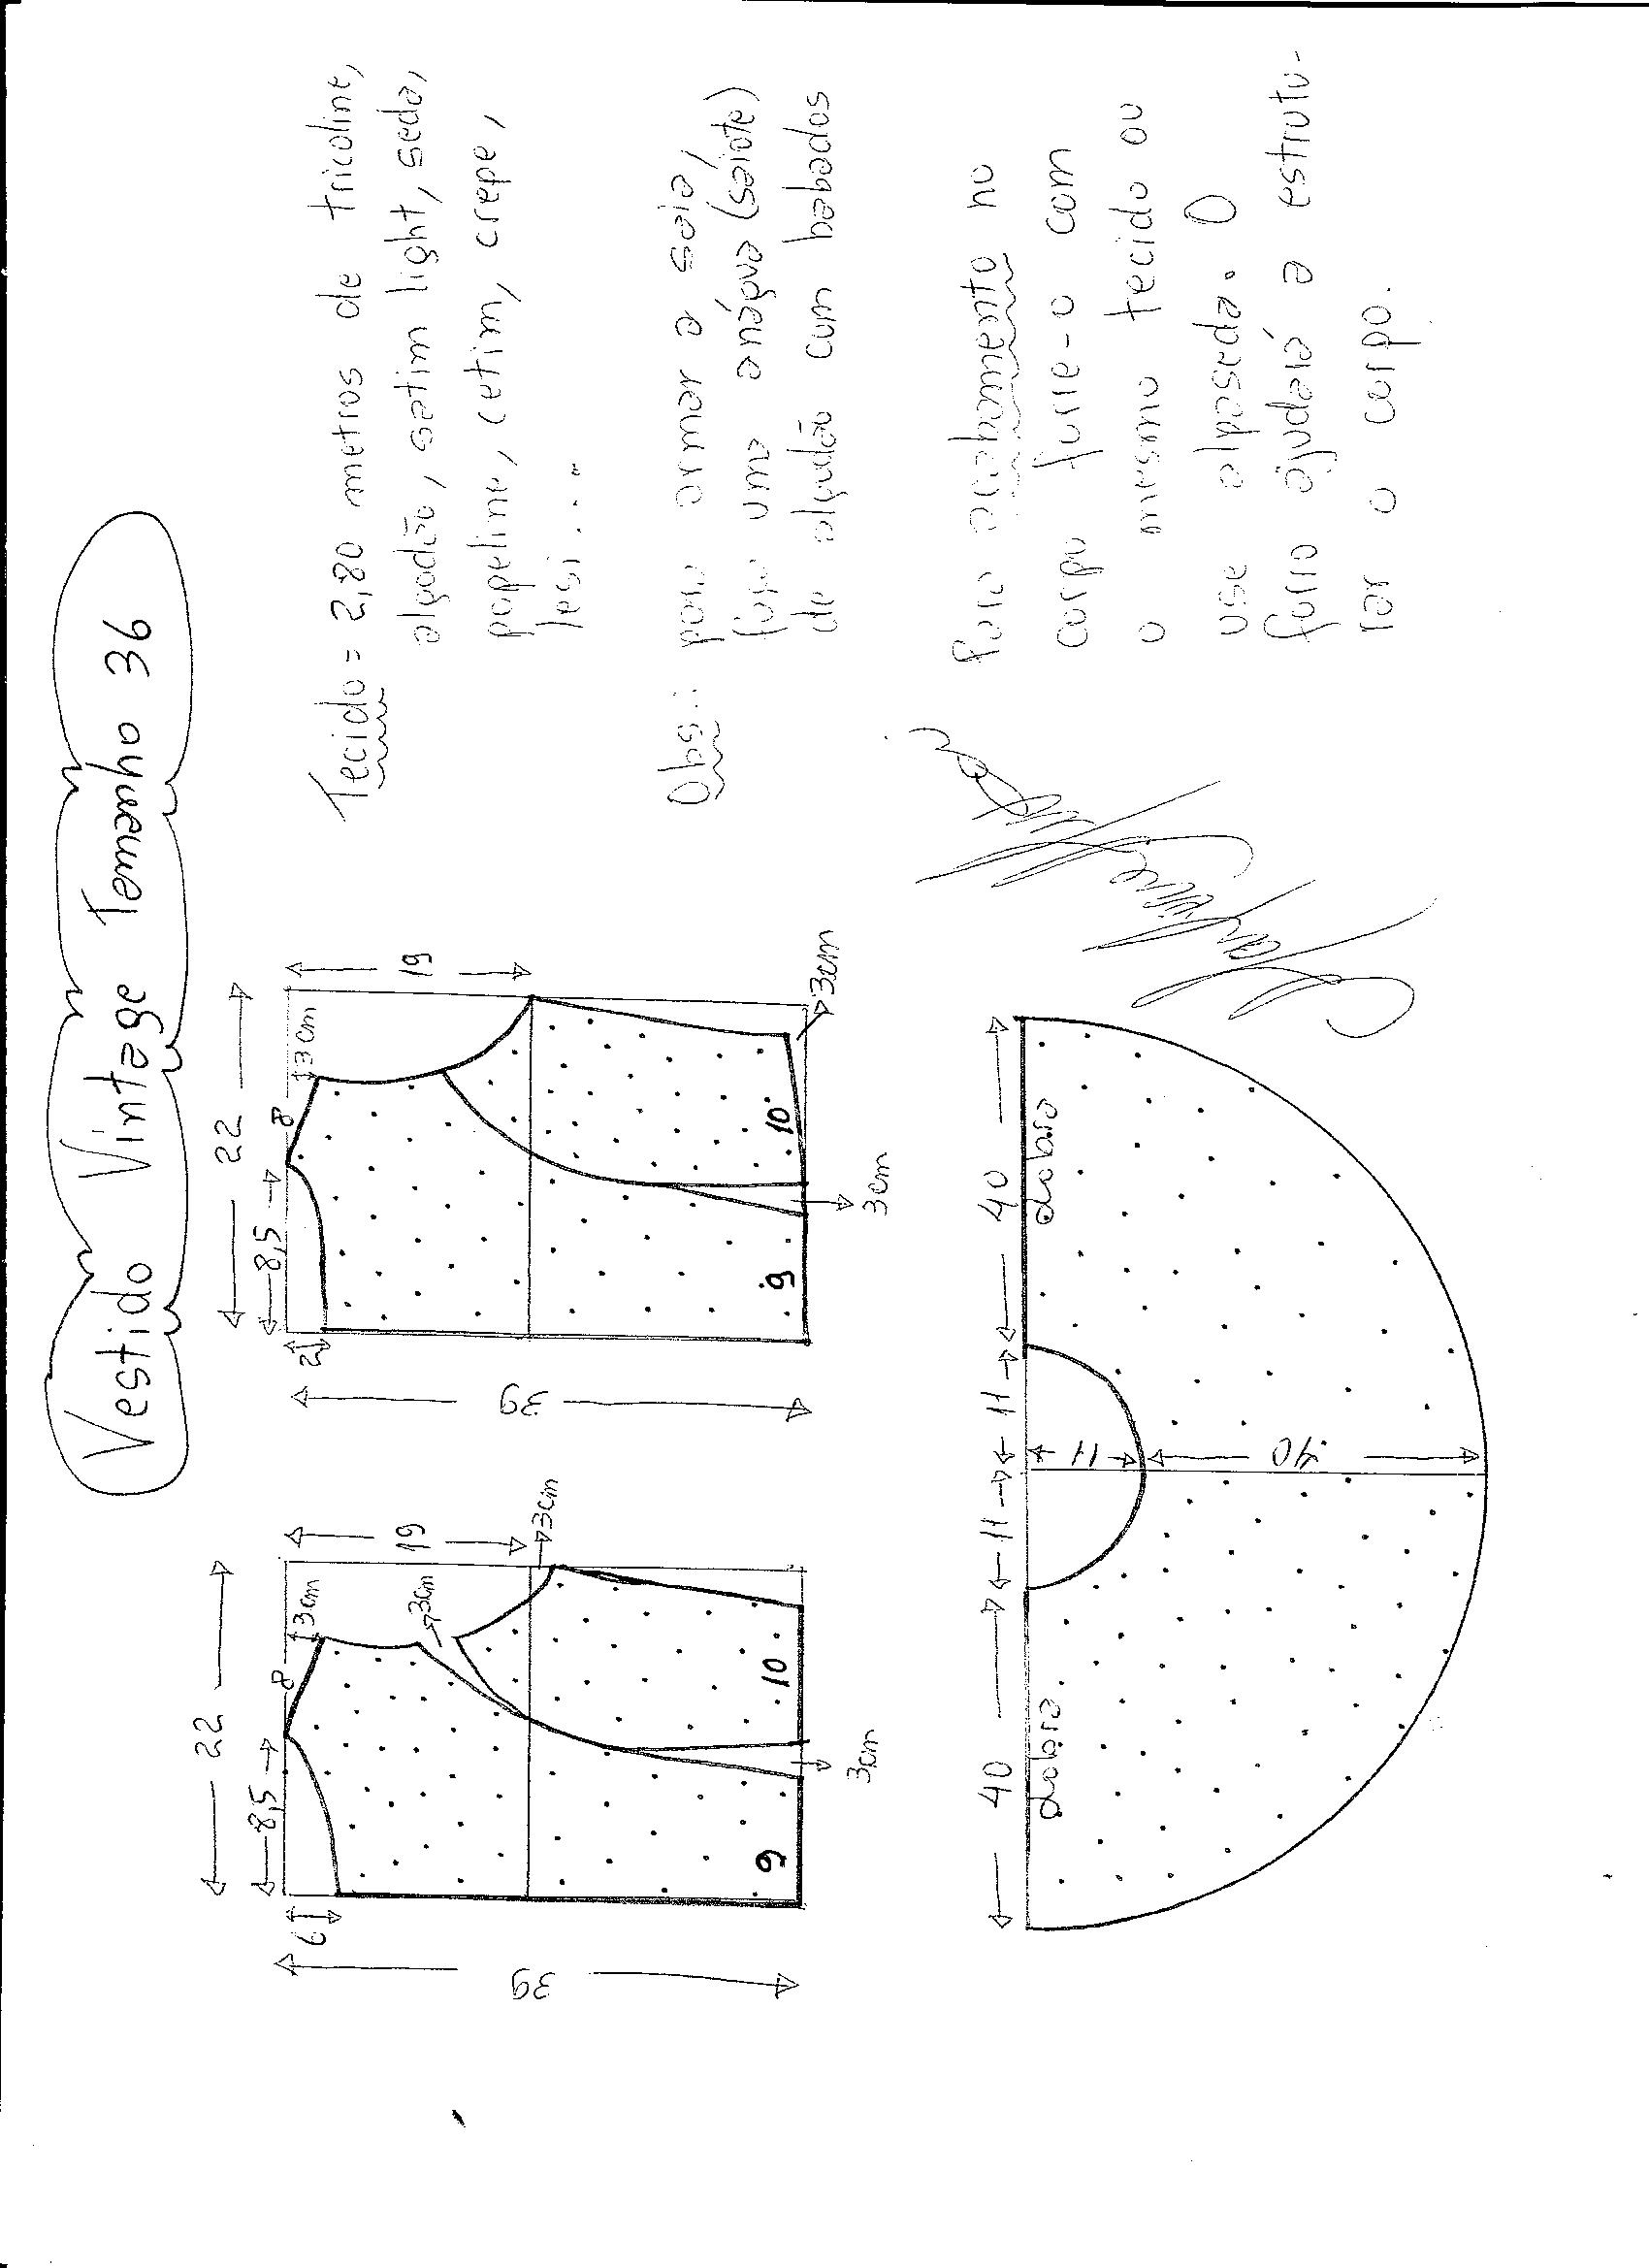 Vestido Vintage Tamanho 36
22
8,5
8
3cm
19
6
3cm
3cm
39
9
10
3cm
22
8,5
8
3cm
19
2
39
9
10
3cm
3cm
Tecido = 2,80 metros de tricoline,
algodão, satim light, seda,
popeline, cetim, crepe,
lesi...
Obs.: para armar a saia,
faça uma anágua (saiote)
de algodão com babados
Para acabamento no
corpo forre-o com
o mesmo tecido ou
use alpaseda. O
forro ajudará a estrutu-
rar o corpo.
40
11
11
40
dobra
11
dobra
40
Marlene